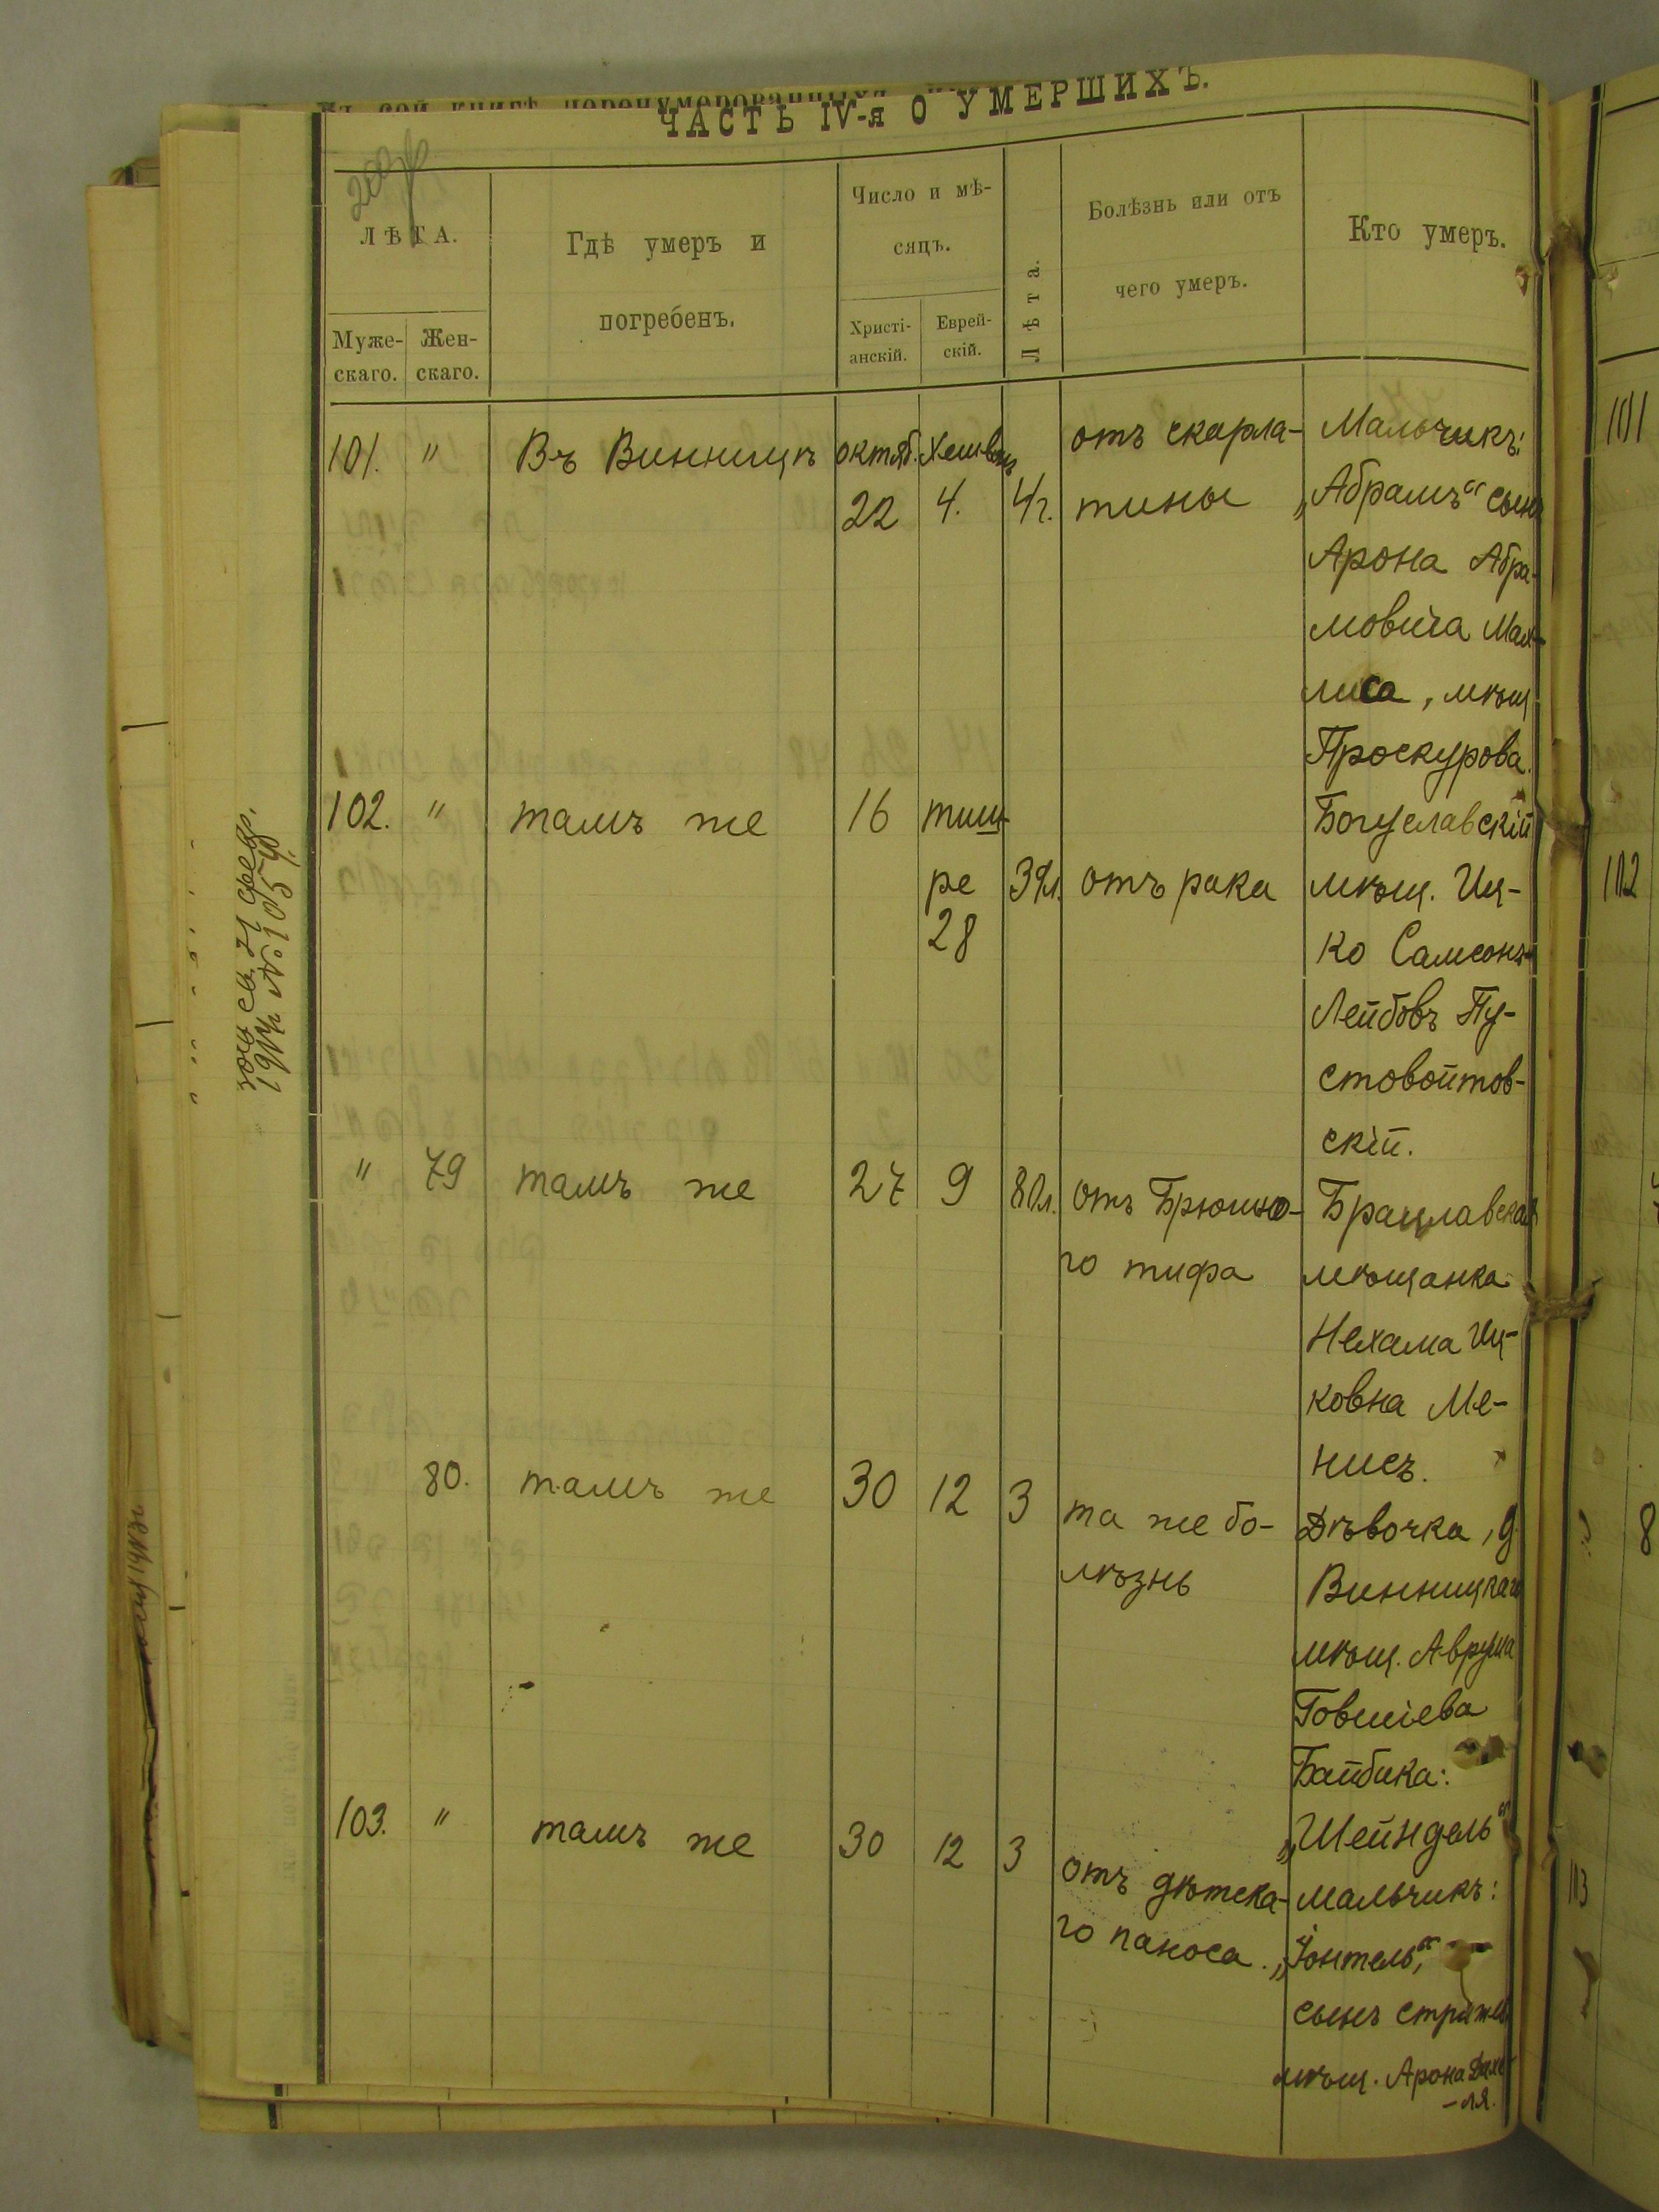 ЧАСТЬ IV-я О УМЕРШИХЪ.
ЛѢТА.
Муже-
скаго.
Жен-
скаго.
Гдѣ умеръ и
погребенъ.
Число и мѣ-
сяцъ.
Христі-
анскій.
Еврей-
скій.
Лѣта.
Болѣзнь или отъ
чего умеръ.
Кто умеръ.
101. " Въ Винницѣ октяб. Хешвон
22 4. 4г.
отъ скарла-
тины
Мальчикъ:
„Абрамъ“ сынъ
Арона Абра-
мовича
лиса, мѣщ
Проскурова.
102. " тамъ же 16 тиш-
ре
28
39л. отъ рака
Богуславскій
мѣщ. Иц-
ко Самсонъ
Лейбовъ Пу-
стовойтов-
скій.
" 79 тамъ же 27 9 80л. отъ Брюшно-
го тифа
Брацлавская
мѣщанка
Нехама Иц-
ковна Ме-
нисъ.
80. тамъ же 30 12 3 та же бо-
лѣзнь
Дѣвочка, д.
Винницкаго
мѣщ. Аврума
Говшіева
Байбика:
„Шейндель“
103. " тамъ же 30 12 3 отъ дѣтска-
го паноса.
мальчикъ:
„Іонтель“,
сынъ стриж
мѣщ. Арона
-ля.
101
102
8
103